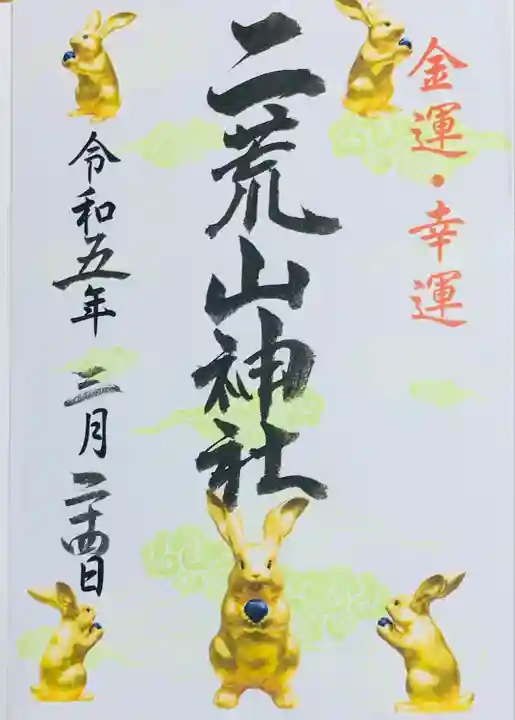 金運・幸運
二荒山神社
令和五年 三月二十四日